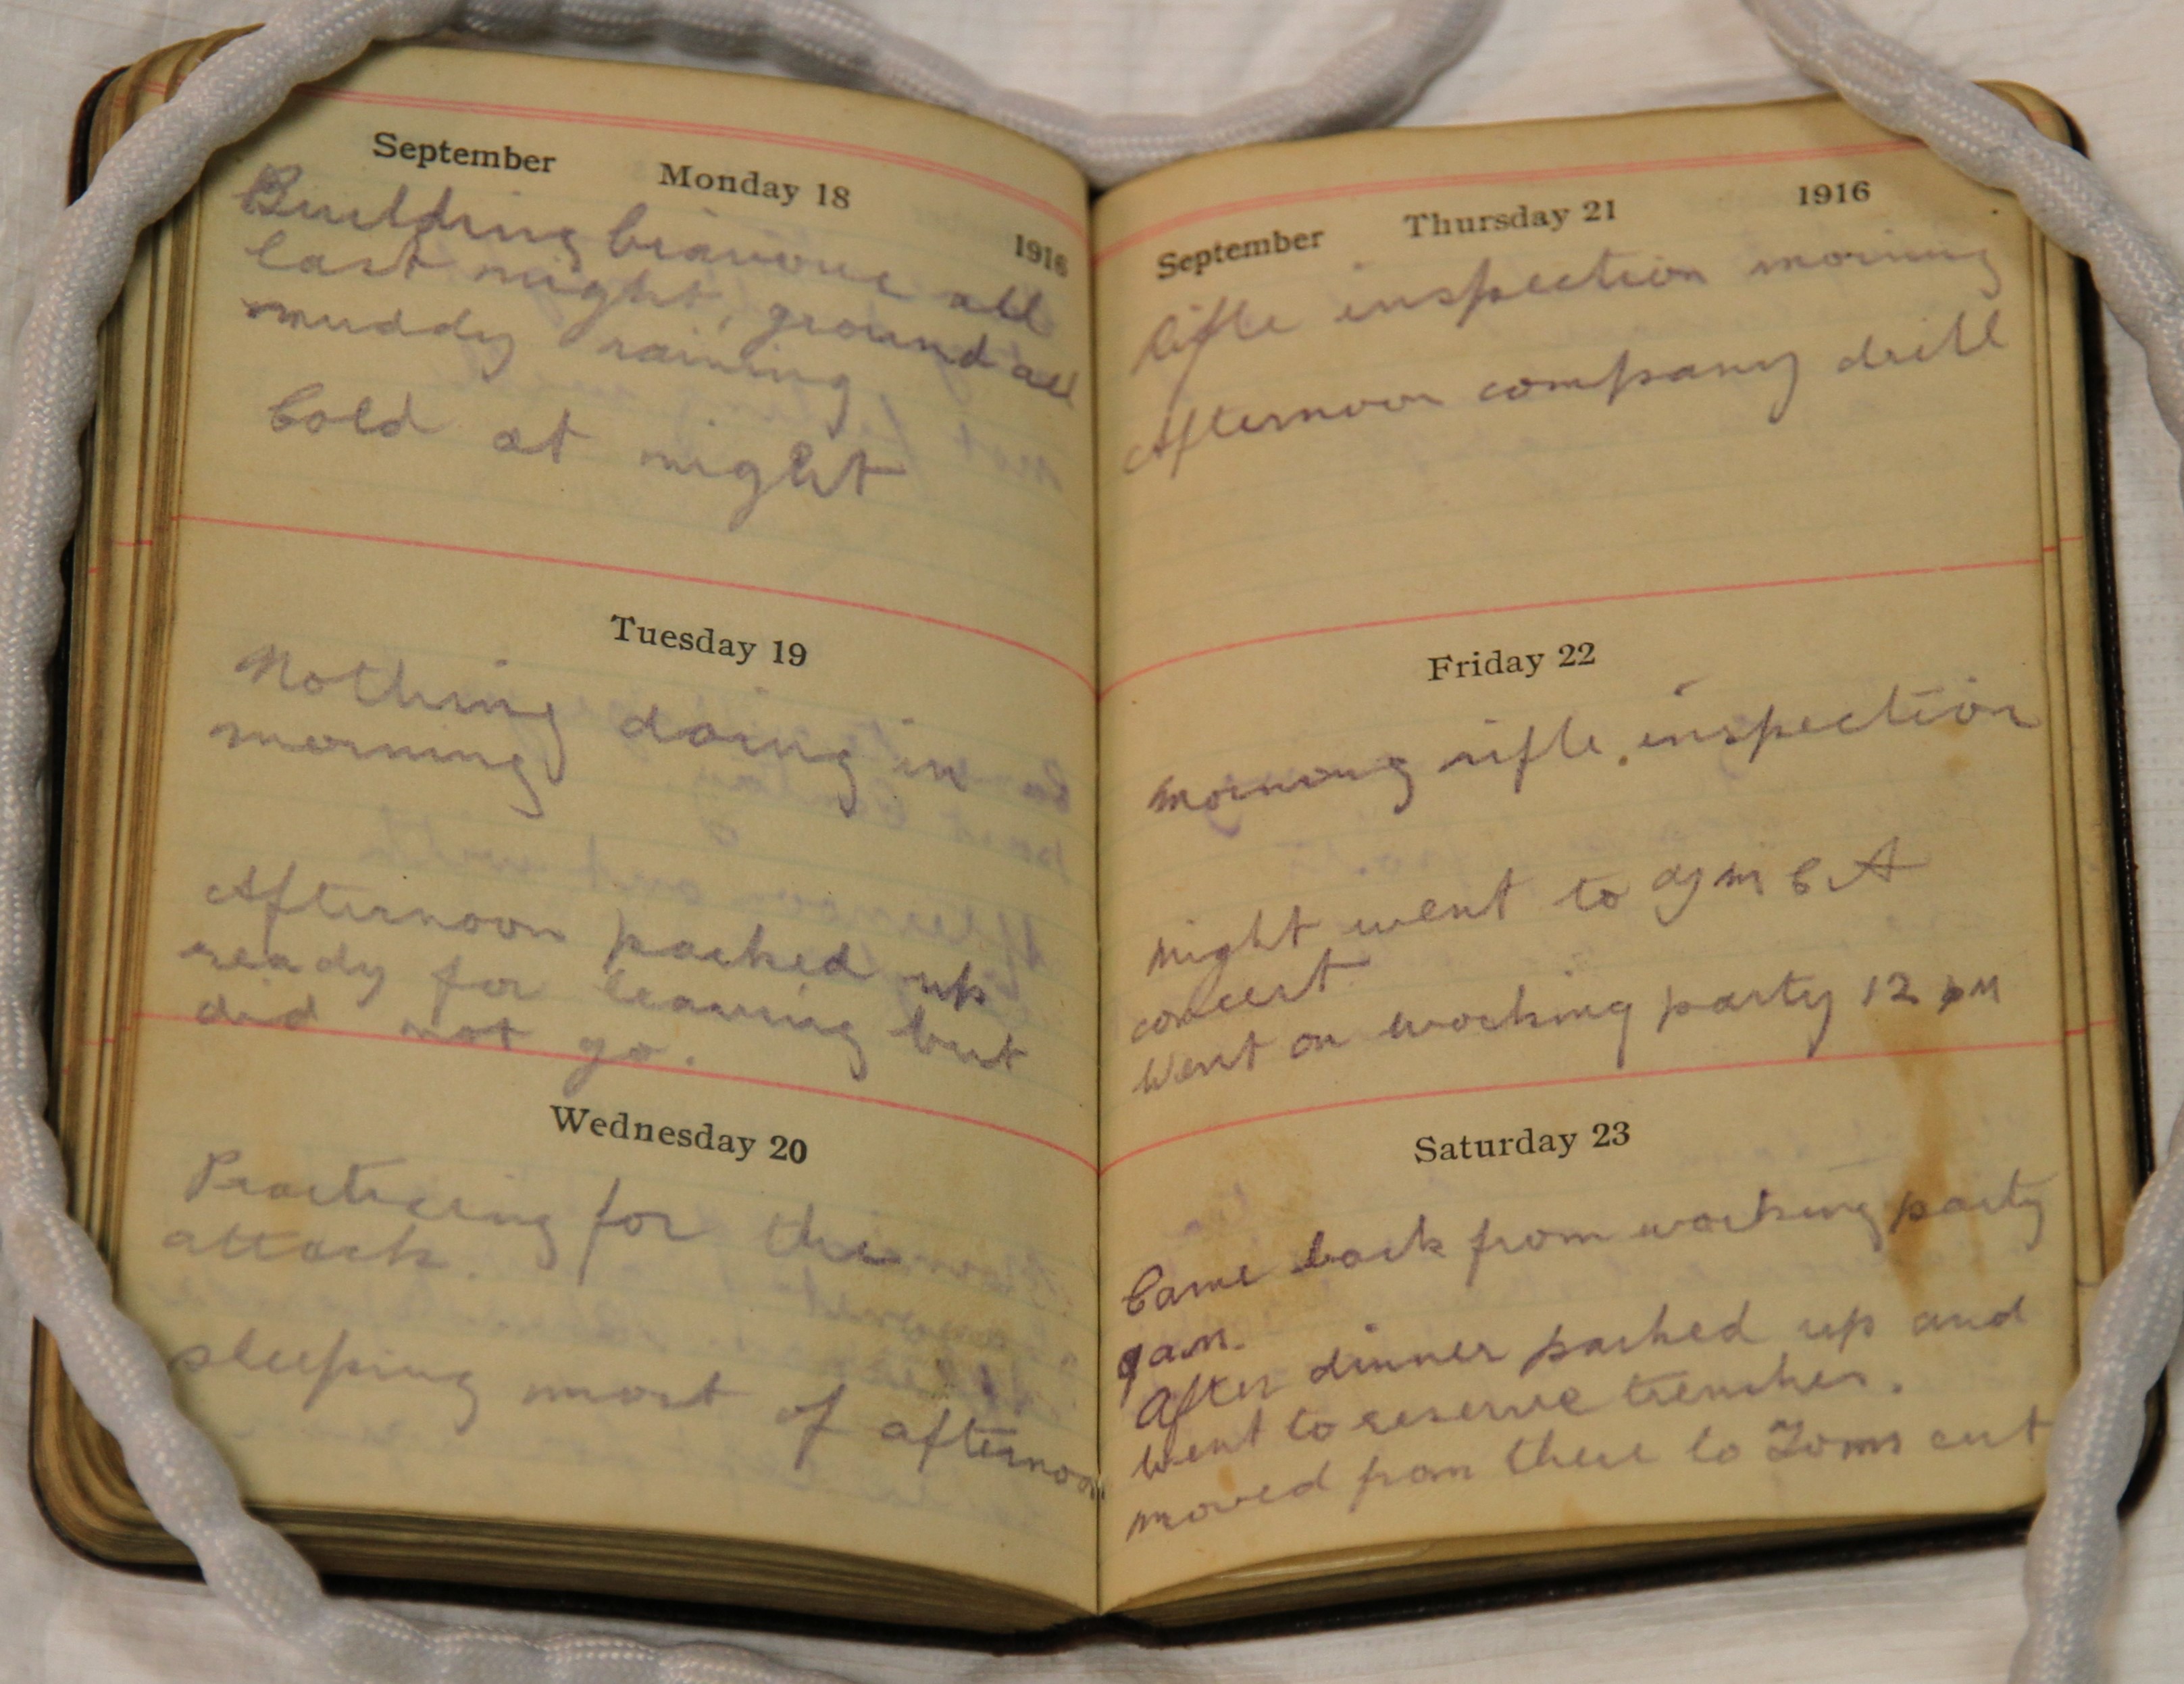 September Monday 18 1916
Building bivouc all
last night, ground all
muddy raining
Cold at night
Tuesday 19
Nothing doing in
morning
Afternoon packed up
ready for leaving but
did not go.
Wednesday 20
Practicing for the
attack.
sleeping most of afternoon
September Thursday 21 1916
Rifle inspection morning
Afternoon company drill
Friday 22
Morning rifle inspection
Night went to YMCA
concert.
Went on working party 12 pm
Saturday 23
Came back from working party
9 a.m.
After dinner packed up and
Went to reserve trenches.
moved from there to Toms cut